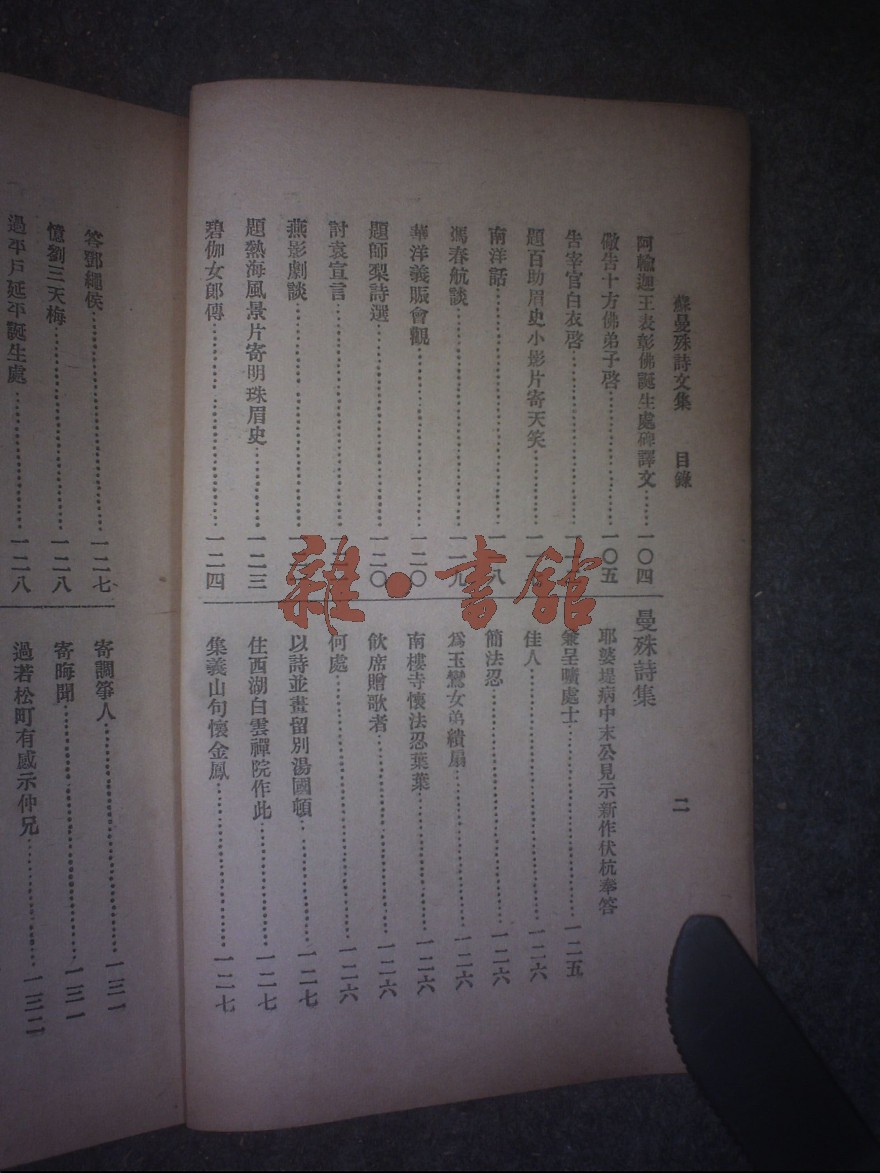 蘇曼殊詩文集 目錄 二
阿輸迦王表彰佛誕生處碑譯文……一〇四
敬告十方佛弟子啓……一〇五
告宰官白衣啓……
題百助眉史小影片寄天笑……
南洋話……一一八
馮春航談……一一九
華洋義賑會觀……一二〇
題師梨詩選……一二〇
討袁宣言……
燕影劇談……
題熱海風景片寄明珠眉史……一二三
碧伽女郎傳……一二四
曼殊詩集
耶婆堤病中末公見示新作伏枕奉答
兼呈曠處士……一二五
佳人……一二六
簡法忍……一二六
爲玉鸞女弟繢扇……一二六
南樓寺懷法忍葉葉……一二六
飲席贈歌者……一二六
何處……一二六
以詩並畫留別湯國頓……一二七
住西湖白雲禪院作此……一二七
集義山句懷金鳳……一二七
答鄧繩侯……一二七
憶劉三天梅……一二八
過平戶延平誕生處……一二八
寄調箏人……一三一
寄晦聞……一三一
過若松町有感示仲兄……一三二
雜·書館